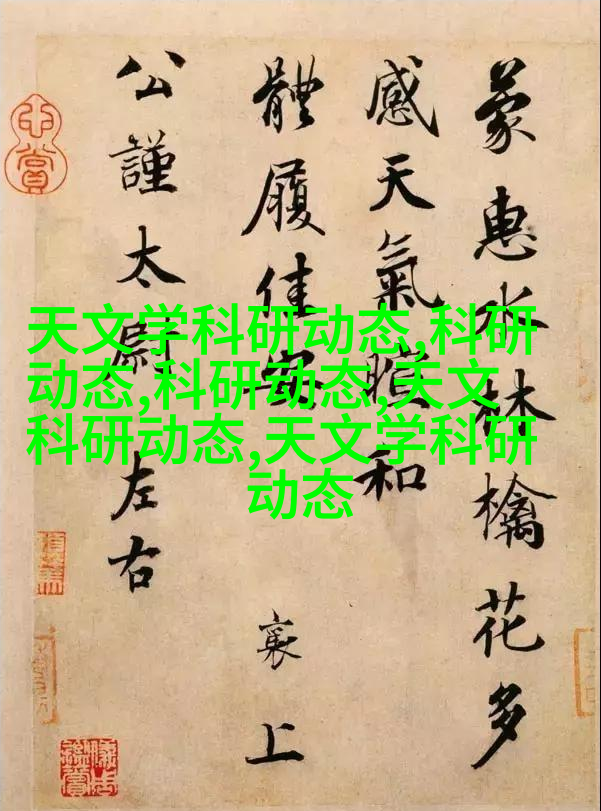 蒙惠水林檎花多
感天氣暄和
體履佳安 襄上
公謹太尉左右
天文学科研动态,科研
动态,科研动态,天文
科研动态,天文学科研
动态